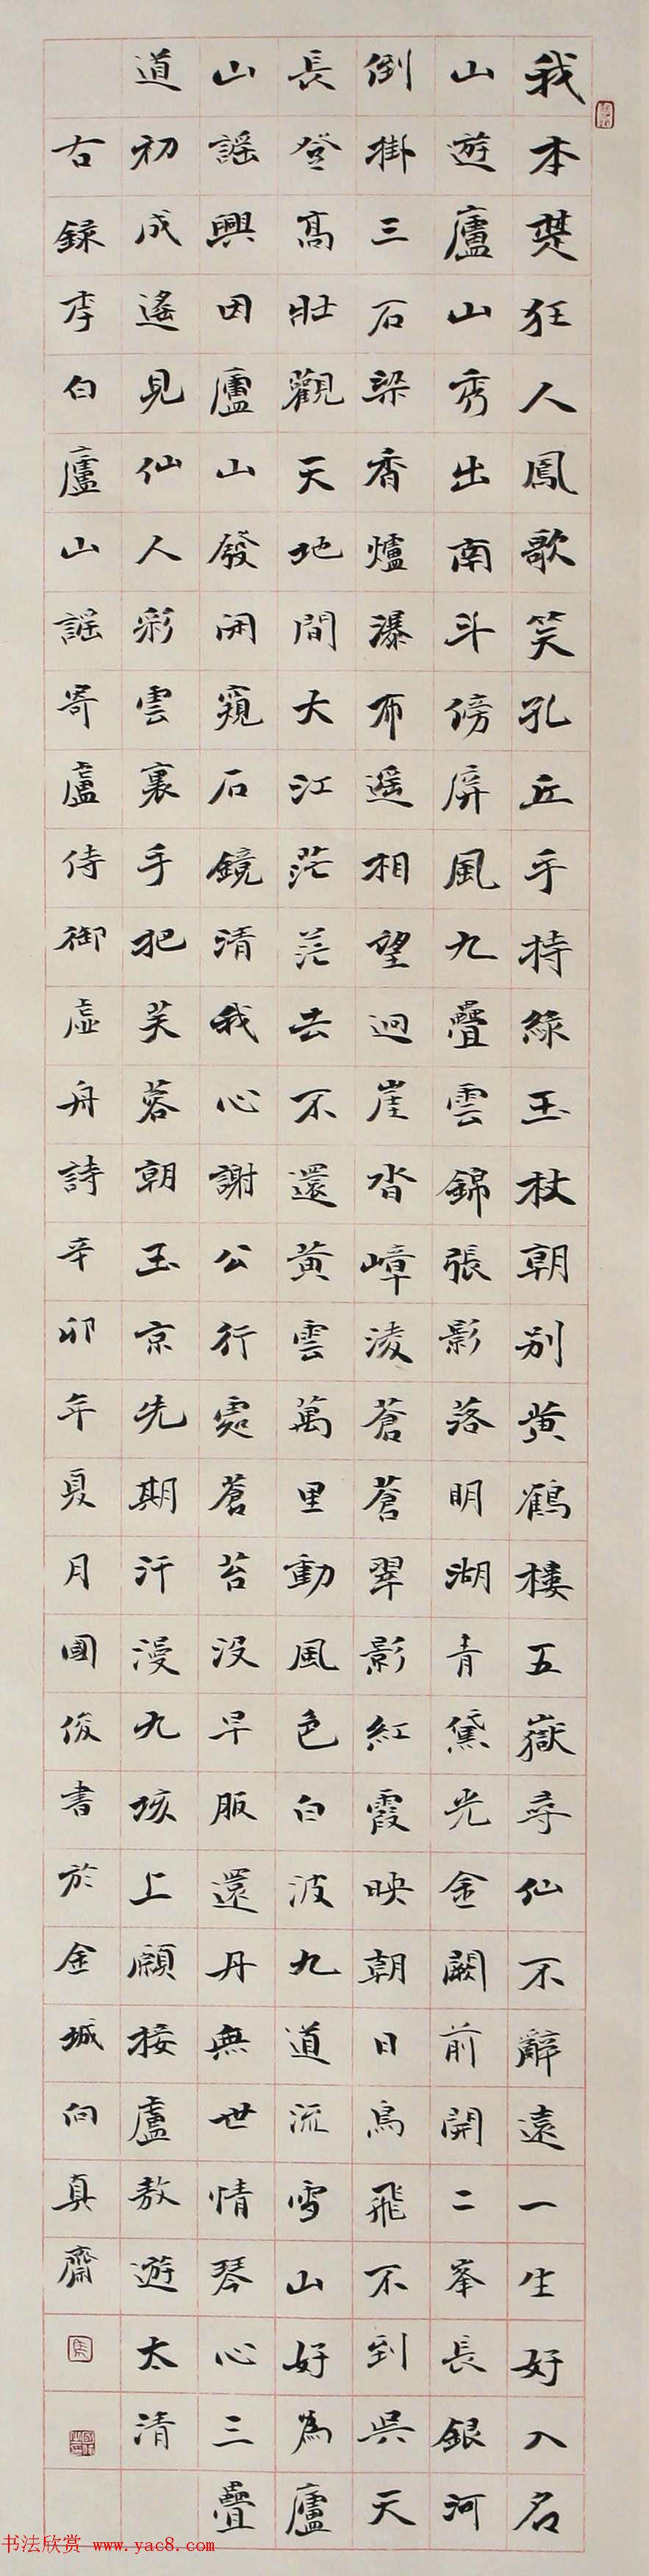 我本楚狂人鳳歌笑孔丘手持綠玉杖朝別黃鶴樓五嶽尋仙不辭遠一生好入名
山遊廬山秀出南斗傍屏風九疊雲錦張影落明湖青黛光金闕前開二峯長銀河
倒掛三石梁香爐瀑布遥相望迴崖沓嶂淩蒼蒼翠影紅霞映朝日鳥飛不到吳天
長登高壯觀天地間大江茫茫去不還黃雲萬里動風色白波九道流雪山好為廬
山謡興因廬山發閑窺石鏡清我心謝公行處蒼苔沒早服還丹無世情琴心三疊
道初成遙見仙人彩雲裏手把芙蓉朝玉京先期汗漫九垓上願接盧敖遊太清
右録李白廬山謡寄盧侍御虛舟詩辛卯年夏月國俊書於金城向真齋
书法欣赏 www.yac8.com